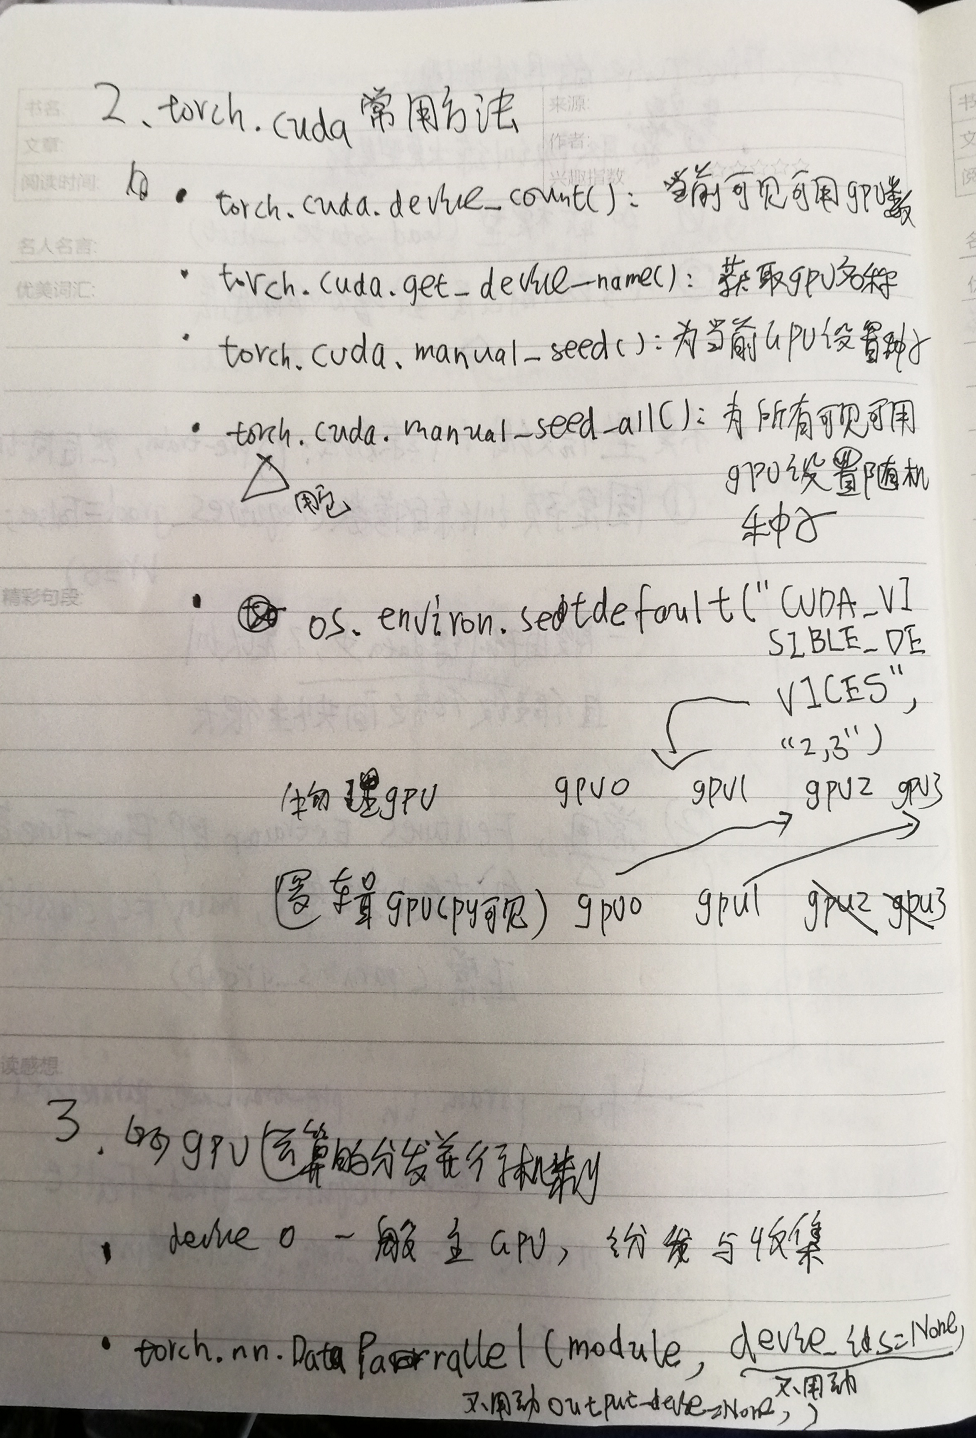 书名:
来源:
文章:
作者:
阅读时间:
兴趣指数 ☆☆☆☆☆
名人名言:
优美词汇:
精彩句段:
读感想:
2、torch.cuda常用方法
• torch.cuda.device_count(): 当前可见可用gpu数
• torch.cuda.get_device_name(): 获取gpu名称
• torch.cuda.manual_seed(): 为当前GPU设置种子
• torch.cuda.manual_seed_all(): 为所有可见可用
gpu设置随机
种子
• os.environ.setdefault("CUDA_VI
SIBLE_DE
VICES",
"2,3")
物理gpu gpu0 gpu1 gpu2 gpu3
逻辑gpu(py可见) gpu0 gpu1 gpu2 gpu3
3. 的gpu运算的分发并行机制
• device 0 一般主GPU, 分发与收集
• torch.nn.DataParallel(module, device_ids=None,
不用动
不用动 output_device=None, )